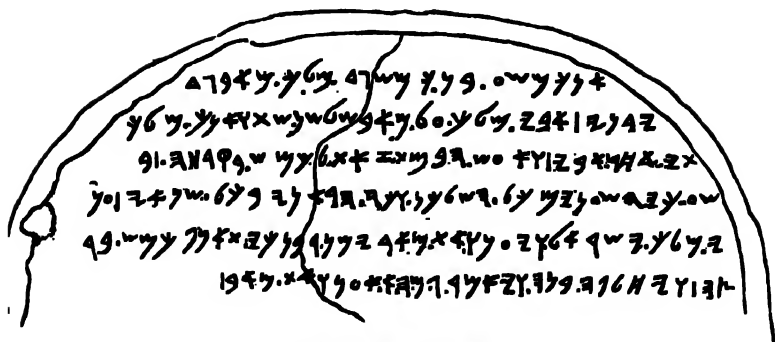 𐤀𐤍𐤊.𐤌𐤔𐤏.𐤁𐤍.𐤊𐤌𐤔𐤂𐤃.𐤌𐤋𐤊.𐤌𐤀𐤁.𐤄𐤃
𐤉𐤁𐤍𐤉|𐤀𐤁𐤉.𐤌𐤋𐤊.𐤏𐤋.𐤌𐤀𐤁.𐤔𐤋𐤔𐤍.𐤔𐤕.𐤅𐤀𐤍𐤊.𐤌𐤋𐤊
𐤕𐤉.𐤀𐤇𐤓.𐤀𐤁𐤉|𐤅𐤀𐤏𐤔.𐤄𐤁𐤌𐤕.𐤆𐤀𐤕.𐤋𐤊𐤌𐤔.𐤁𐤒𐤓𐤇𐤄|𐤁
𐤔𐤏.𐤊𐤉.𐤄𐤔𐤏𐤍𐤉.𐤌𐤊𐤋.𐤄𐤔𐤋𐤊𐤍.𐤅𐤊𐤉.𐤄𐤓𐤀𐤍𐤉.𐤁𐤊𐤋.𐤔𐤍𐤀𐤉|𐤏𐤌
𐤉.𐤌𐤋𐤊.𐤉𐤔𐤓𐤀𐤋.𐤅𐤉𐤏𐤍𐤅.𐤀𐤕.𐤌𐤀𐤁.𐤉𐤌𐤍.𐤓𐤁𐤍.𐤊𐤉.𐤉𐤀𐤍𐤐.𐤊𐤌𐤔.𐤁𐤀𐤓
𐤑𐤄|𐤅𐤉𐤇𐤋𐤐𐤄.𐤁𐤍𐤄.𐤅𐤉𐤀𐤌𐤓.𐤂𐤌.𐤄𐤀.𐤀𐤏𐤍𐤅.𐤀𐤕.𐤌𐤀𐤁|